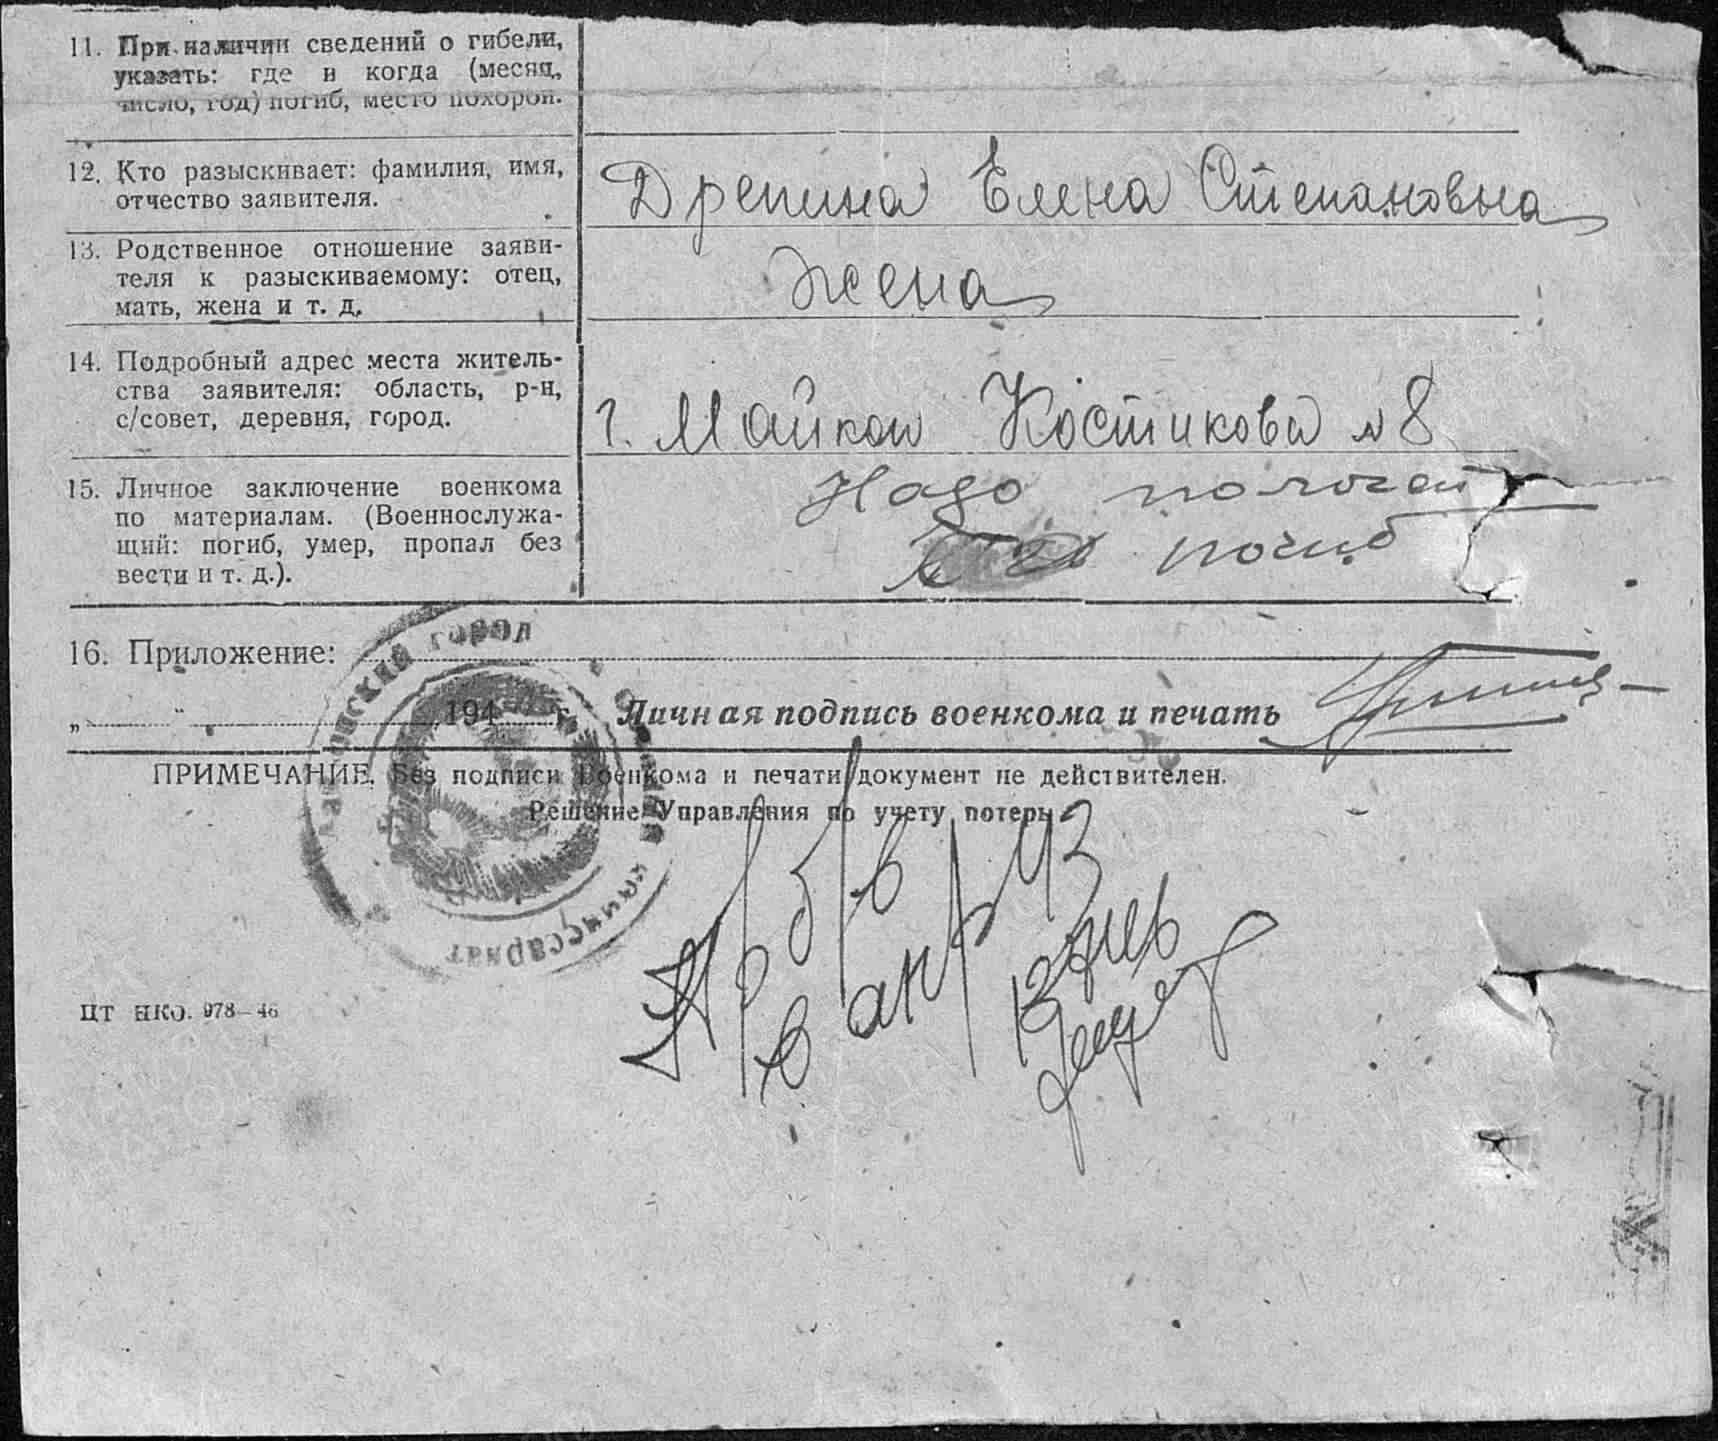 11. При наличии сведений о гибели,
указать: где и когда (месяц,
число, год) погиб, место похорон.
12. Кто разыскивает: фамилия, имя,
отчество заявителя.
Дрепина Елена Степановна
13. Родственное отношение заяви-
теля к разыскиваемому: отец,
мать, жена и т. д.
Жена
14. Подробный адрес места житель-
ства заявителя: область, р-н,
с/совет, деревня, город.
г. Майкоп Костикова № 8
15. Личное заключение военкома
по материалам. (Военнослужа-
щий: погиб, умер, пропал без
вести и т. д.).
Надо полагать
погиб
16. Приложение:
„ " 194 г. Личная подпись военкома и печать
ПРИМЕЧАНИЕ. Без подписи Военкома и печати документ не действителен.
Решение Управления по учету потерь
город
комиссариат
ЦТ НКО. 978—46